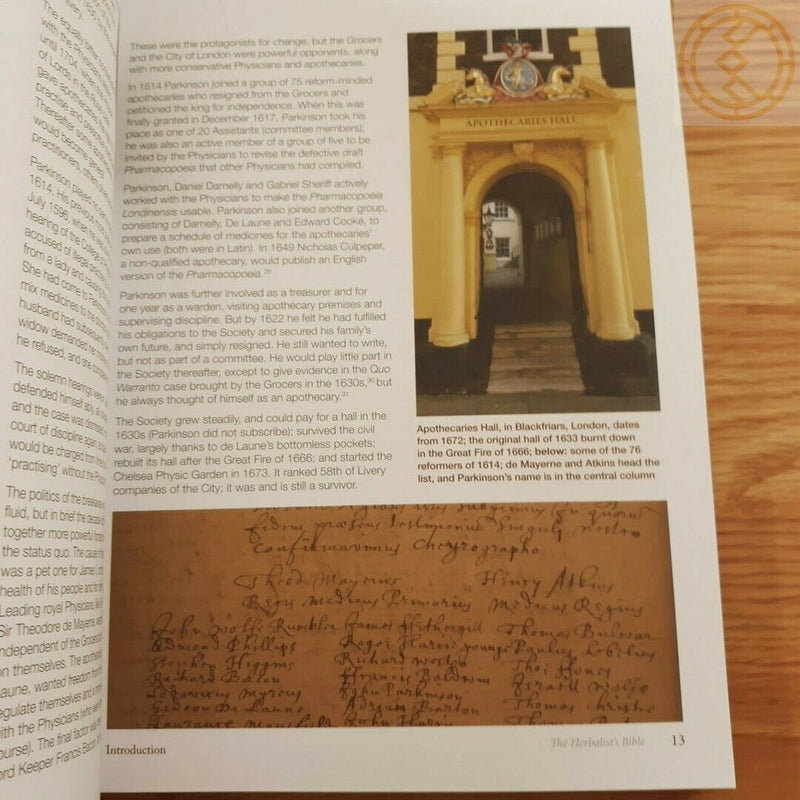 The equally daring
with the Physicians
until 1704, was
of Lords in the
gave apothecaries
practise and
Thereafter some
would become
practitioners, others
Parkinson played
1614. His previous
July 1596, when he
hearing of the College
accused of illegal
from a lady and causing
She had come to
mix medicines to the
husband had subsequently
widow demanded her
he refused, and she
The solemn hearings were
defended himself ably
and the case was dismissed
court of discipline again
would be charged from
'practising' without the
The politics of the breakaway
fluid, but in brief the decade
together more powerful forces
the status quo. The cause of the
was a pet one for James I,
health of his people and for
Leading royal Physicians, like
Sir Theodore de Mayerne, wanted
independent of the Grocers
on themselves. The apothecaries
Laune, wanted freedom from
regulate themselves and
with the Physicians (who were
course). The final factor was
ord Keeper Francis Bacon
These were the protagonists for change, but the Grocers
and the City of London were powerful opponents, along
with more conservative Physicians and apothecaries.
In 1614 Parkinson joined a group of 75 reform-minded
apothecaries who resigned from the Grocers and
petitioned the king for independence. When this was
finally granted in December 1617, Parkinson took his
place as one of 20 Assistants (committee members);
he was also an active member of a group of five to be
invited by the Physicians to revise the defective draft
Pharmacopoeia that other Physicians had compiled.
Parkinson, Daniel Darnelly and Gabriel Sheriff actively
worked with the Physicians to make the Pharmacopoeia
Londinensis usable. Parkinson also joined another group,
consisting of Darnelly, De Laune and Edward Cooke, to
prepare a schedule of medicines for the apothecaries'
own use (both were in Latin). In 1649 Nicholas Culpeper,
a non-qualified apothecary, would publish an English
version of the Pharmacopoeia.29
Parkinson was further involved as a treasurer and for
one year as a warden, visiting apothecary premises and
supervising discipline. But by 1622 he felt he had fulfilled
his obligations to the Society and secured his family's
own future, and simply resigned. He still wanted to write,
but not as part of a committee. He would play little part in
the Society thereafter, except to give evidence in the Quo
Warranto case brought by the Grocers in the 1630s,30 but
he always thought of himself as an apothecary.31
The Society grew steadily, and could pay for a hall in the
1630s (Parkinson did not subscribe); survived the civil
war, largely thanks to de Laune's bottomless pockets;
rebuilt its hall after the Great Fire of 1666; and started the
Chelsea Physic Garden in 1673. It ranked 58th of Livery
companies of the City; it was and is still a survivor.
APOTHECARIES HALL
Apothecaries Hall, in Blackfriars, London, dates
from 1672; the original hall of 1633 burnt down
in the Great Fire of 1666; below: some of the 76
reformers of 1614; de Mayerne and Atkins head the
list, and Parkinson's name is in the central column
confirmavimus Chyrographo
Theod Mayernus Henry Atkins
Regis Medicus Primarius Medicus Regius
John Wolfe Rumbler James Fethergill Thomas Bulwar
Edmond Phillips Roger Harris younge Paulus Lobelius
Stephen Higgins Richard weston
Richard Bacon Francis Baldwin Israell Wolfe
Lodovicus Myrius John Parkinson Thomas Christie
Gideon De Laune Adrian Barton
John Harris
Introduction
The Herbalist's Bible 13